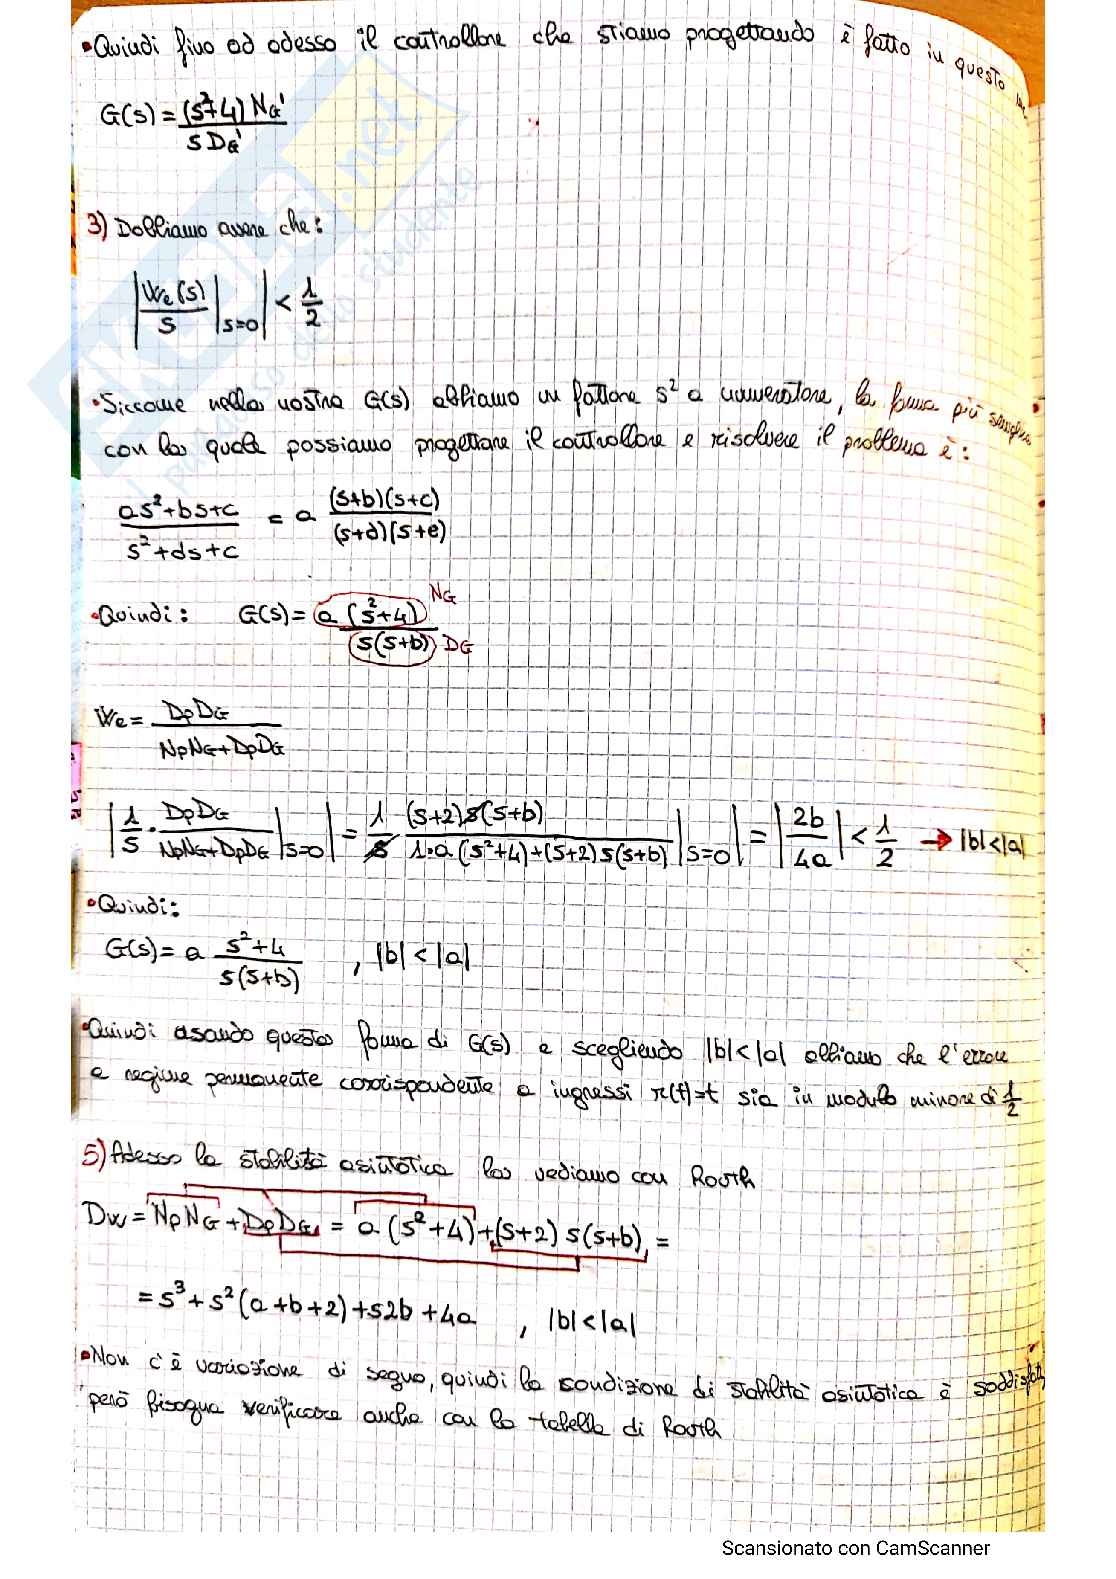 •Quindi fino ad adesso il controllore che stiamo progettando è fatto in questo
G(s) = (s²+4) NG' / s DG'
3) Dobbiamo avere che:
| We(s)/s |s=0 | < 1/2
•Siccome nella nostra G(s) abbiamo un fattore s² a numeratore, la forma più semplice
con la quale possiamo progettare il controllore e risolvere il problema è:
as²+bs+c / s²+ds+c = a (s+b)(s+c) / (s+d)(s+e)
•Quindi: G(s) = a (s²+4) / s(s+b) NG DG
We = DpDG / NpNG+DpDG
| 1/s · DpDG / NpNG+DpDG |s=0 | = 1/s (s+2)s(s+b) / 1·a(s²+4)+(s+2)s(s+b) |s=0 | = | 2b/4a | < 1/2 → |b|<|a|
•Quindi:
G(s) = a s²+4 / s(s+b) , |b|<|a|
•Quindi usando questa forma di G(s) e scegliendo |b|<|a| abbiamo che l'errore
a regime permanente corrispondente a ingressi r(t)=t sia in modulo minore di 1/2
5) Adesso la stabilità asintotica la vediamo con Routh
Dw = NpNG + DpDG = a(s²+4)+(s+2) s(s+b) =
= s³ + s²(a+b+2) + s2b + 4a , |b|<|a|
•Non c'è variazione di segno, quindi la condizione di stabilità asintotica è
però bisogna verificare anche con la tabella di Routh
Scansionato con CamScanner